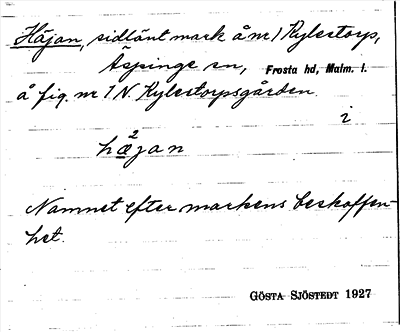 Häjan, sidlänt mark å nr 1 Rylestorp,
Äspinge sn, Frosta hd, Malm. l.
å fig. nr 1 N. Rylestorpsgården
i
2
hæjan
Namnet efter markens beskaffen-
het.
GÖSTA SJÖSTEDT 1927